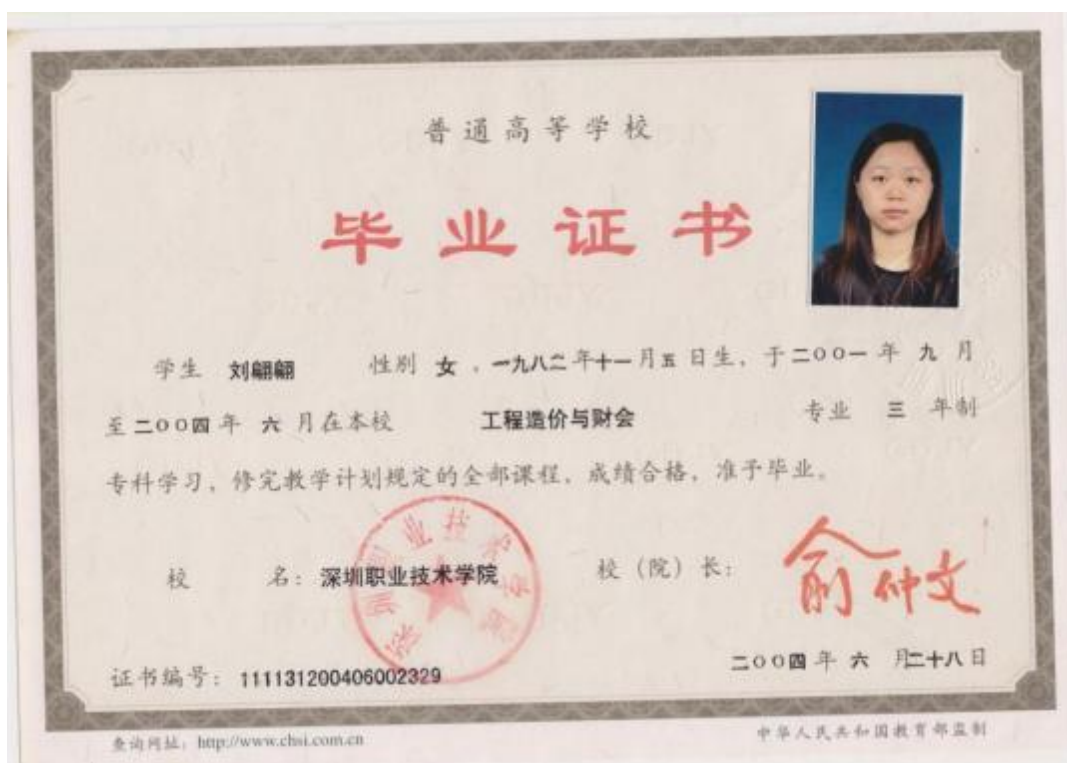 普通高等学校
毕业证书
学生 刘翩翩 性别 女 ，一九八二年十一月五日生，于二〇〇一年 九 月
至二〇〇四年 六 月在本校 工程造价与财会 专业 三 年制
专科学习，修完教学计划规定的全部课程，成绩合格，准予毕业。
校 名：深圳职业技术学院 校（院）长： 俞仲文
证书编号：111131200406002329 二〇〇四年 六 月二十八日
查询网址：http://www.chsi.com.cn 中华人民共和国教育部监制